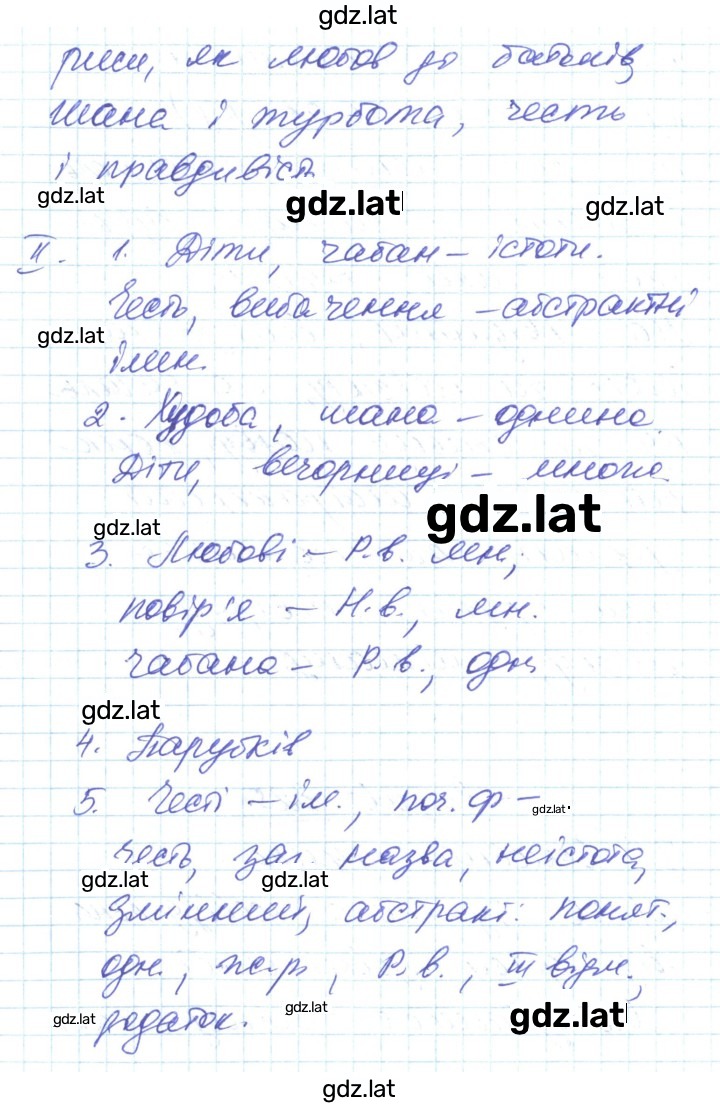 gdz.lat
риси, як любов до батьків,
шана і турбота, честь
і правдивість
gdz.lat gdz.lat gdz.lat
II. 1. Діти, чабан – істоти.
Честь, вибачення – абстрактні
gdz.lat
імен.
2. Худоба, шана – однина.
Діти, вечорниці – множ.
gdz.lat
gdz.lat
3. Любові – Р.в. мн.;
повір'я – Н.в., мн.
чабана – Р.в., одн.
gdz.lat
4. Парубків
5. Честі – ім., поч. ф –
gdz.lat
честь, заг. назва, неістота,
gdz.lat gdz.lat
змінний, абстракт. понят.,
одн., ж.р., Р.в., III відм.,
gdz.lat gdz.lat gdz.lat
додаток.
gdz.lat